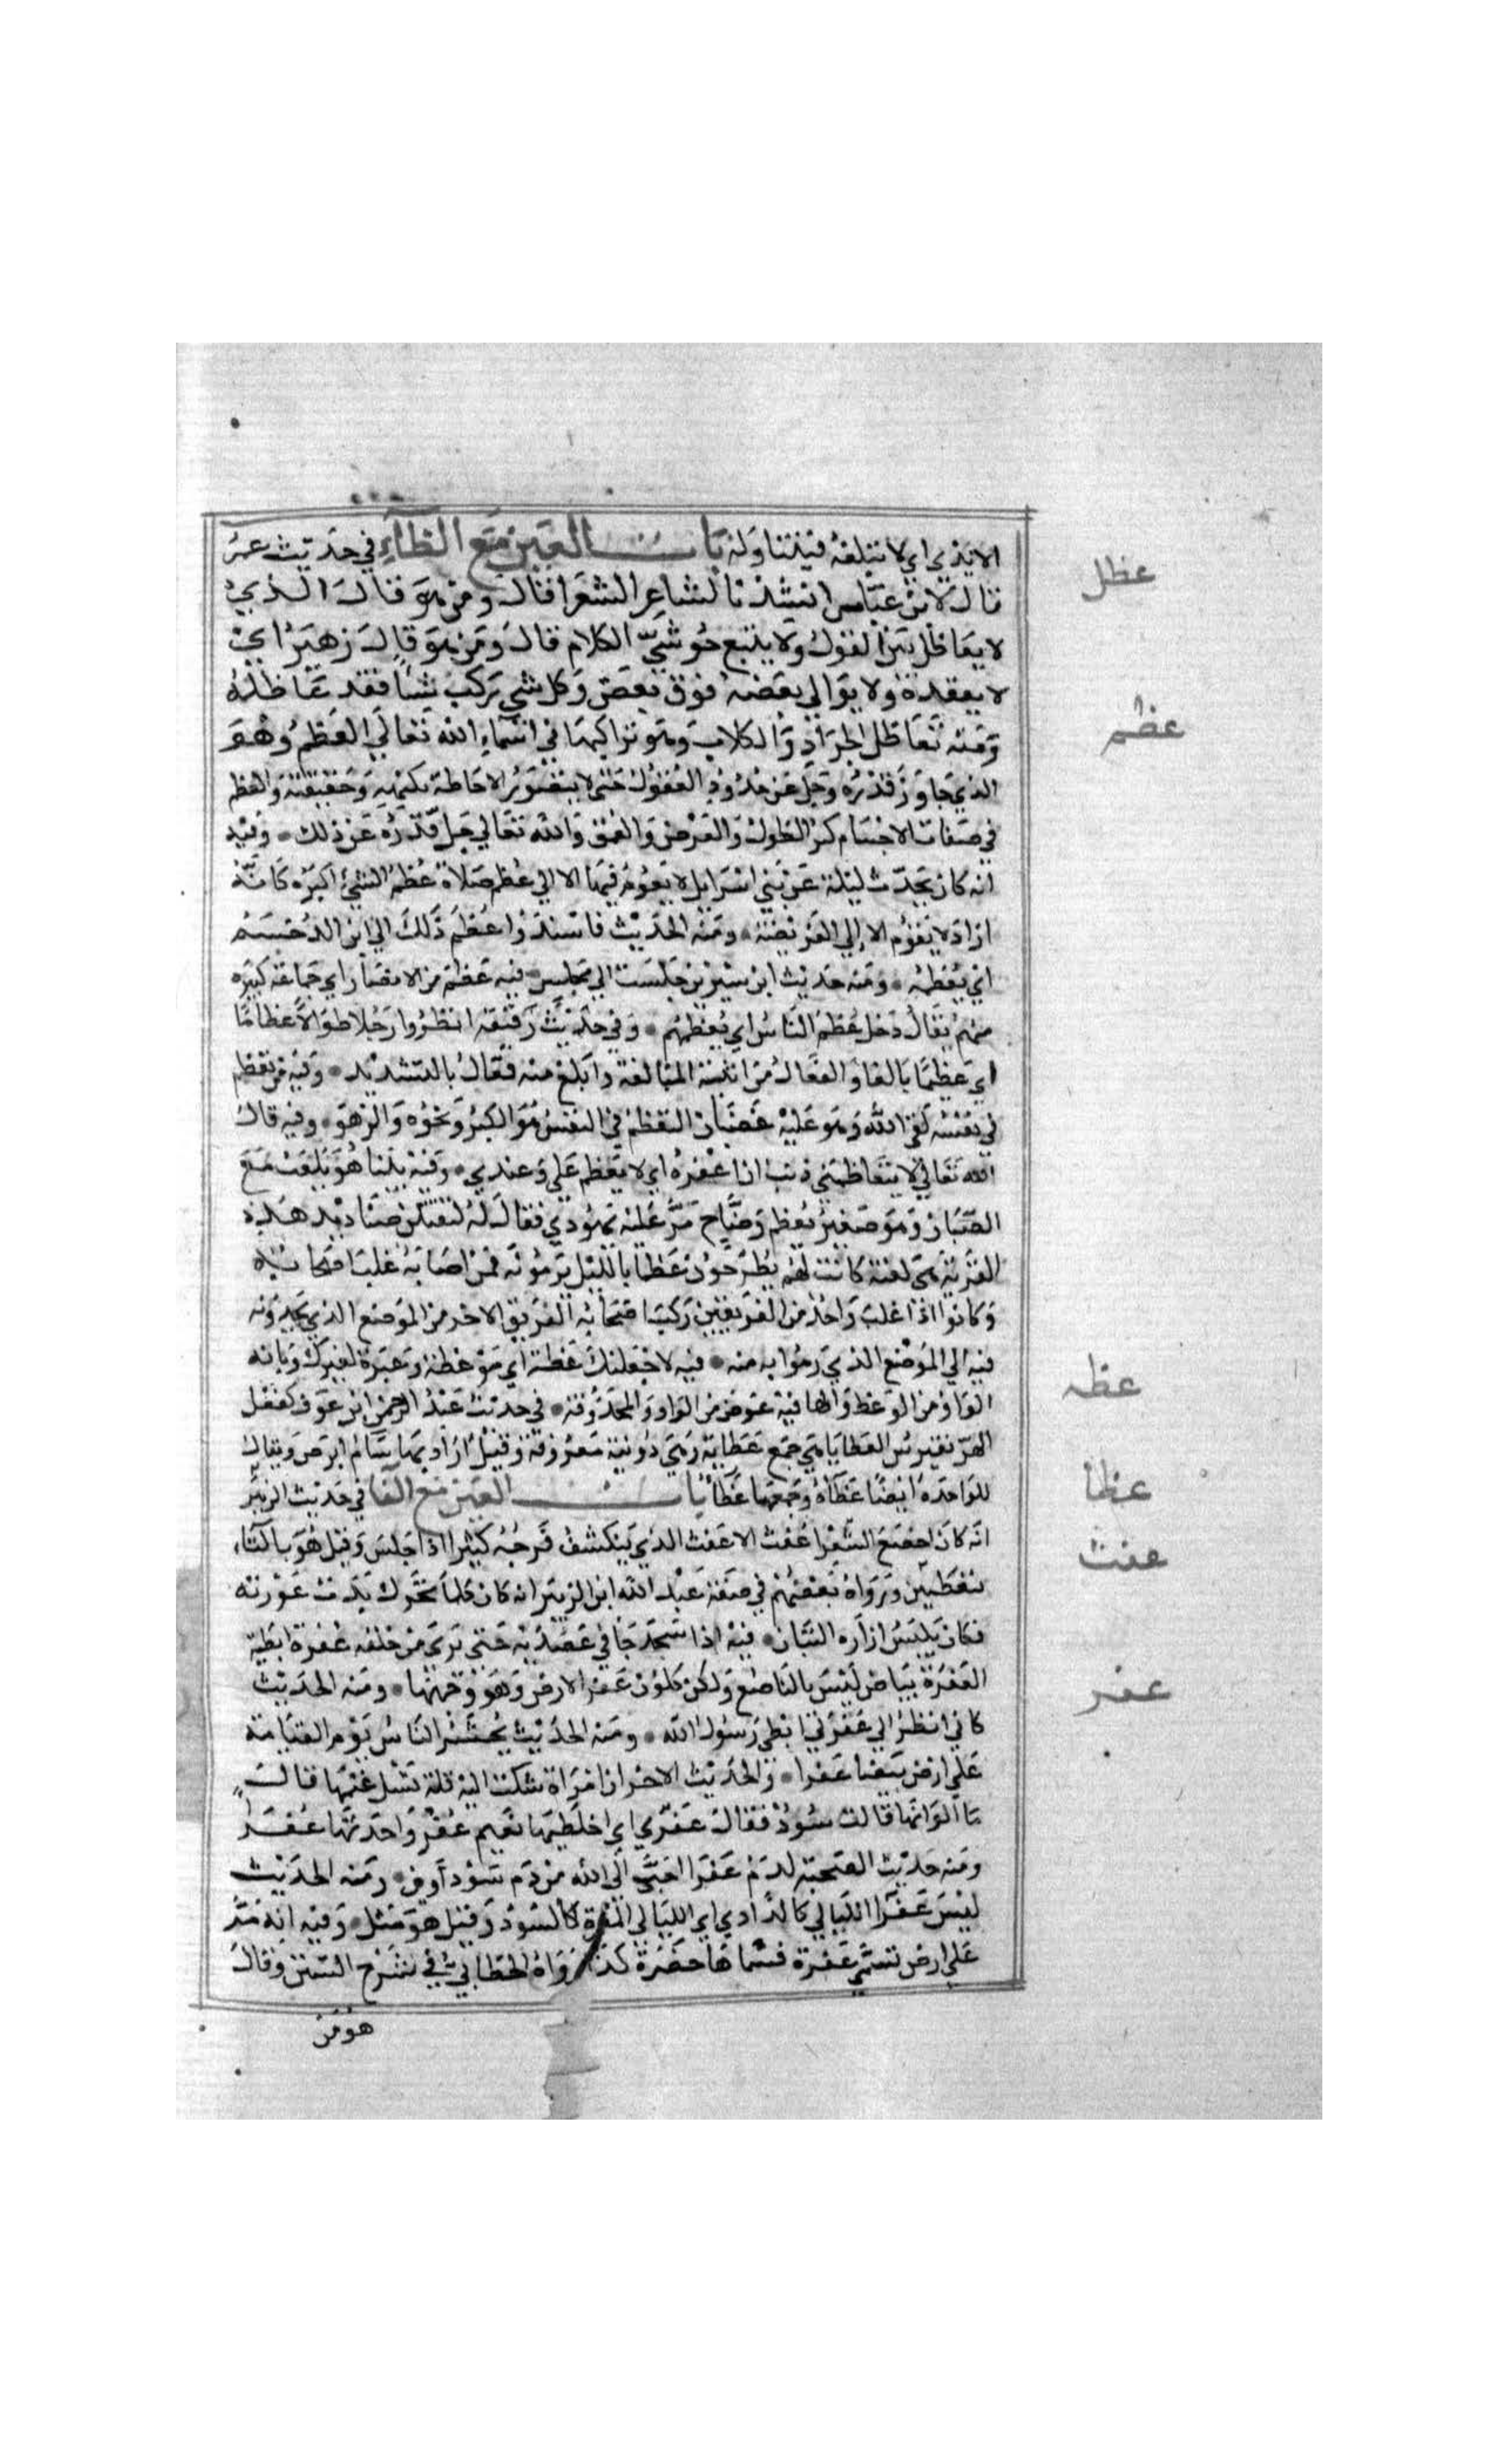 الايدي اي لا تبلغه فتتناوله باب العين مع الظاء في حديث عمر
عظل
قال لابن عباس انشدنا لشاعر الشعرا قال ومن هو قال الذي
لا يعاظل بين القول ولا يتبع حوشي الكلام قال ومن هو قال زهير اي
لا يعقده ولا يوالي بعضه فوق بعض وكل شي يركب شيا فقد عاظله
ومنه تعاظل الجراد والكلاب وهو تراكبها في اسماء الله تعالي العظيم وهو
عظم
الذي جاوز قدره وجل عن حدود العقول حتى لا يتصور الاحاطة بكنهه وحقيقته والعظم
في صفات الاجسام كبر الطول والعرض والعمق والله تعالي جل قدره عن ذلك وفيه
انه كان يحدث ليلة عن بني اسرايل لا يقوم فيها الا الي عظم صلاة عظم الشئ اكبره كانه
اراد لا يقوم الا الي الفريضة ومنه الحديث فاسندوا عظم ذلك الي ابن الدخشم
اي معظمه ومنه حديث ابن سيرين جلست الي مجلس فيه عظم من الانصار اي جماعة كبيره
منهم يقال دخل عظم الناس اي معظمهم وفي حديث رقيقة انظروا رجلا طوالا عظاما
اي عظيما بالغا والفعال من ابنية المبالغة وابلغ منه فعال بالتشديد وفيه من تعظم
في نفسه لقي الله وهو عليه غضبان التعظم في النفس هو الكبر ونخوه والزهو وفيه قال
الله تعالي لا يتعاظمني ذنب ان اغفره اي لا يعظم علي وعندي وفيه بينا هو يلعب مع
الصبيان وهو صغير بعظم وضاح مر عليه يهودي فقال له لتقتلن صناديد هذه
القرية هي لعبة كانت لهم يطرحون عظما بالليل يرمونه فمن اصابه غلب اصحابه
وكانوا اذا غلب واحد من الفريقين ركب اصحابه الفريق الاخر من الموضع الذي يجدونه
فيه الي الموضع الذي رموا به منه فيه لاجعلنك عظة اي موعظة وعبرة لغيرك وبابه
عظه
الواو من الوعظ والها فيه عوض من الواو المحذوفة في حديث عبد الرحمن ابن عوف كفعل
الهر يفترس العظايا هي جمع عظاية وهي دويبة معروفة وقيل اراد بها سام ابرص ويقال
للواحدة ايضا عظآة وجمعها عظآ باب العين مع الفا في حديث الزبير
عظا
انه كان اخضع اشعرا عفث الاعفث الذي ينكشف فرجه كثيرا اذا جلس وقيل هو بالتاء
عفث
بنقطتين ورواه بعضهم في صفة عبد الله ابن الزبير انه كان كلما تحرك بدت عورته
فكان يلبس ازاره التبان فيه اذا سجد جافي عضديه حتى يرى من خلفه عفرة ابطيه
العفرة بياض ليس بالناصع ولكن كلون عفر الارض وهو وجهها ومنه الحديث
عفر
كاني انظر الي عفرتي ابطي رسول الله ومنه الحديث يحشر الناس يوم القيامة
علي ارض بيضا عفرا والحديث الاخر ان امراة شكت اليه قلة نسل غنمها قال
ما الوانها قالت سود فقال عفري اي اخلطيها بغنم عفر واحدتها عفرا
ومنه حديث الضحية لدم عفرا احب الي الله من دم سوداوين ومنه الحديث
ليس عفر الليالي كالدادي اي الليالي المقمرة كالسود وقيل هو مثل وفيه انه مر
علي ارض تسمي عفرة فسماها خضرة كذا رواه الخطابي في شرح السنن وقال
هو من